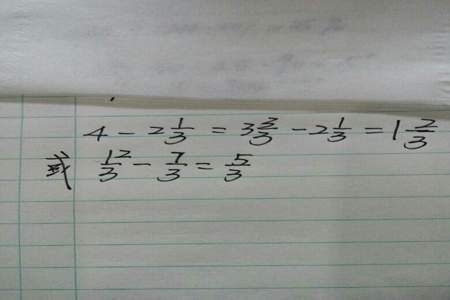 4 - 2 1/3 = 3 3/3 - 2 1/3 = 1 2/3
或 12/3 - 7/3 = 5/3